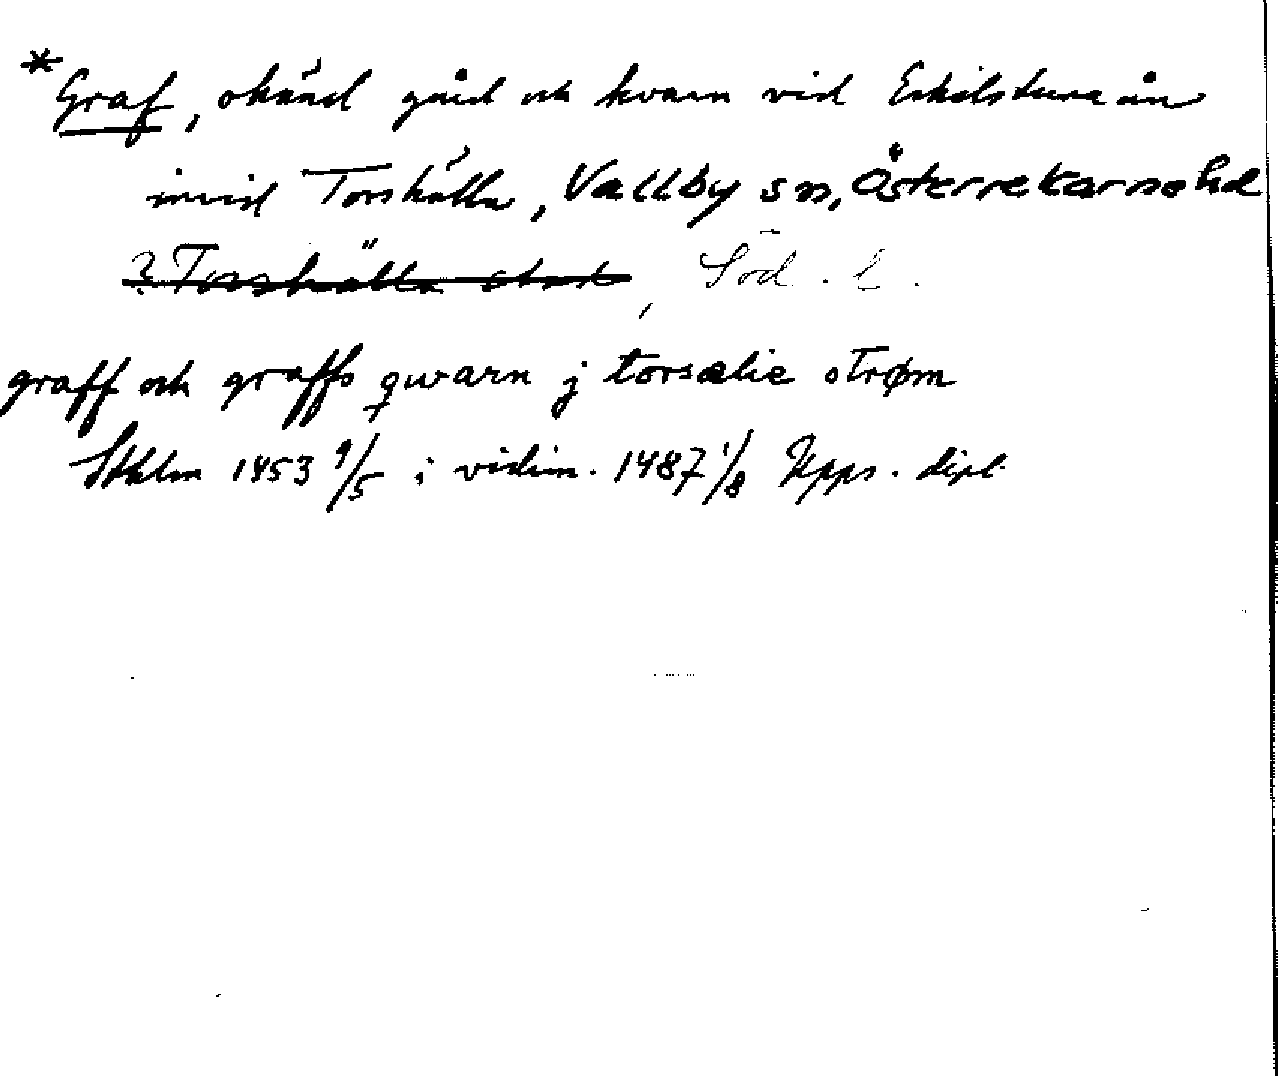 *Graf, okänd gård och kvarn vid Eskilstunaån
invid Torshälla, Vallby sn, Österrekarne hd
? Torshälla stad, Söd. l.
graff och graffs qwarn j torsælie strøm
Sthlm 1453 9/5 i vidim. 1487 1/8 Upps. dipl.